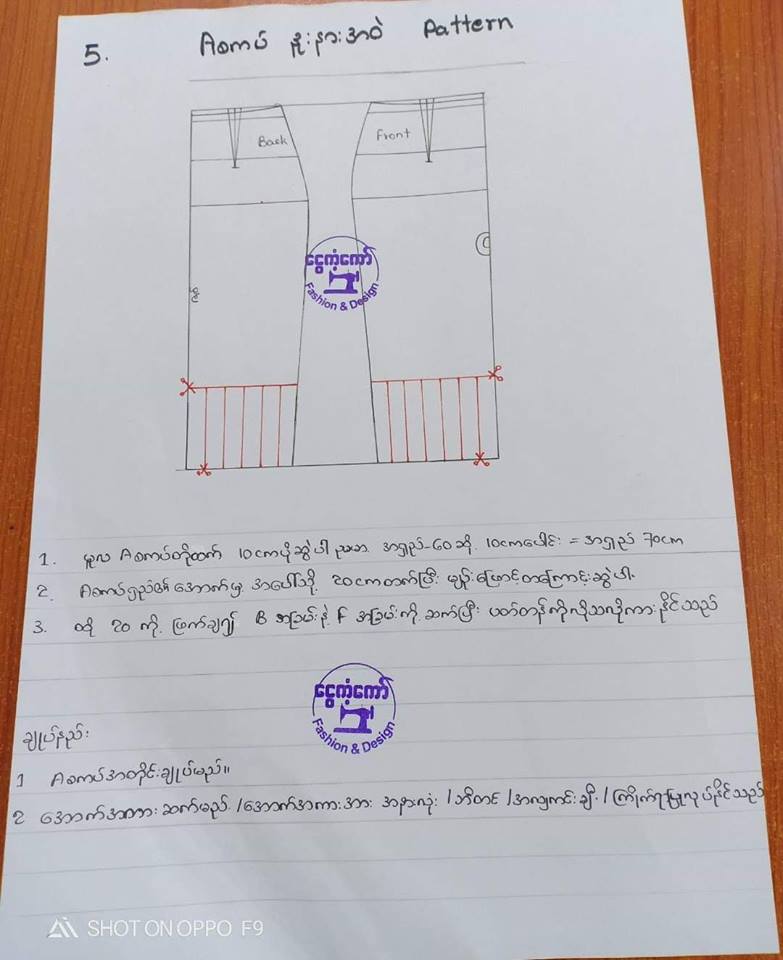 5. A စကပ် နှီးနှားအဝဲ Pattern
Back
Front
ငွေကံ့ကော်
Fashion & Design
1. မူလ A စကပ်တိုထက် 10cm ပိုဆွဲပါ ဥပမာ အရှည်-60 ဆို 10cm ပေါင်း = အရှည် 70cm
2. A စကပ်ရှည်၏ အောက်မှ အပေါ်သို့ 20cm တက်ပြီး မျဉ်းဖြောင့်တကြောင်းဆွဲပါ.
3. ထို 20 ကို ဖြတ်ချ၍ B အခြမ်းနဲ့ F အခြမ်းကို ဆက်ပြီး ပတ်တန်ကိုလိုသလိုကားနိုင်သည်
ငွေကံ့ကော်
Fashion & Design
ချုပ်နည်း
1 A စကပ်အတိုင်းချုပ်မည်။
2 အောက်အကား ဆက်မည် / အောက်အကားအား အနားလုံး / ဘီတင် / / ကြိုက်ရာပြုလုပ်နိုင်သည်
SHOT ON OPPO F9